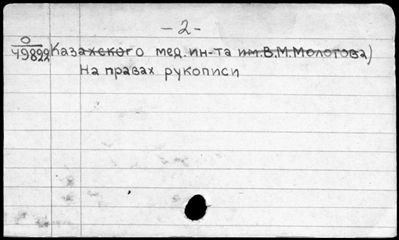 -2-
О
49822 Казахского мед. ин-та им. В.М. Молотова)
На правах рукописи